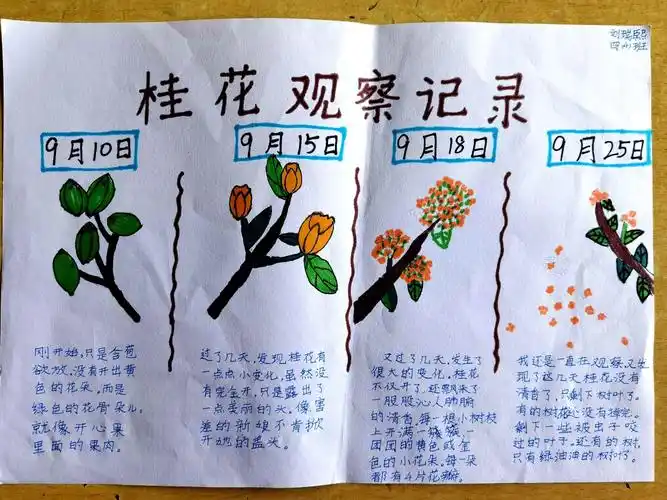 刘瑞熙
四(1)班
桂花观察记录
9月10日
9月15日
9月18日
9月25日
刚开始,只是含苞
欲放,没有开出黄
色的花朵,而是
绿色的花骨朵儿,
就像开心果
里面的果肉。
过了几天,发现桂花有
一点点小变化,虽然没
有完全开,只是露出了
一点美丽的头,像害
羞的新娘不肯掀
开她的盖头。
又过了几天,发生了
很大的变化,桂花
不仅开了,还飘来了
一股股沁人肺腑
的清香,每一根小树枝
上开满一簇簇,一
团团的黄色或金
色的小花朵,每一朵
都有4片花瓣。
我还是一直在观察,又发
现了这几天桂花没有
清香了,只剩下树叶了。
有的树枝还没有掉完,
剩下一些被虫子咬
过的叶子。还有的树,
只有绿油油的树叶了。